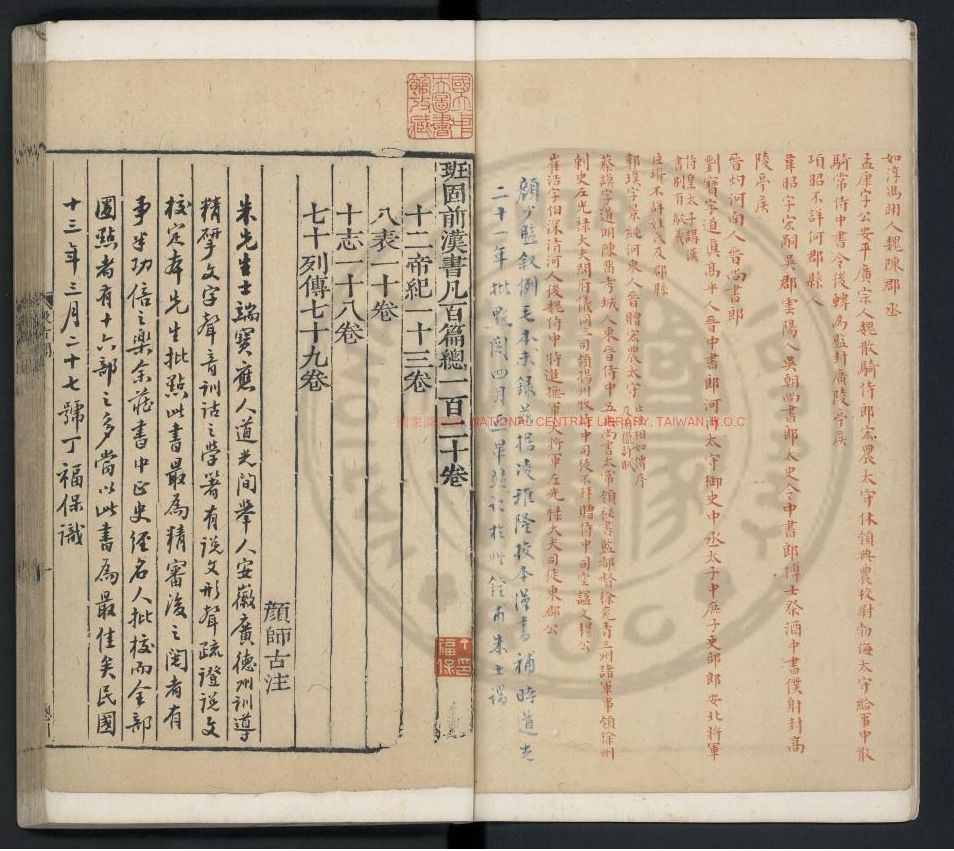 如淳馮翊人魏陳郡丞
孟康字公安平廣宗人魏散騎侍郎宏農太守休領典農校尉勃海太守給事中散
騎常侍中書令後轉為監封廣陵亭侯
項昭不詳何郡縣人
韋昭字宏嗣吳郡雲陽人吳朝尚書郎太史令中書郎博士祭酒中書僕射封高
陵亭侯
晉灼河南人晉尚書郎
劉寶字道真高平人晉中書郎河內太守御史中丞太子中庶子吏部郎安北將軍
侍皇太子講漢
書別有駮義
臣瓚不詳姓氏及郡縣
郭璞字景純河東人晉贈宏農太守
止注相如傳序
及游獵詩賦
蔡謨字道明陳留考城人東晉侍中五兵尚書太常領秘書監都督徐兗青三州諸軍事領徐州
刺史左光祿大夫開府儀同三司領揚州牧侍中司徒不拜贈侍中司空謚文穆公
崔浩字伯深清河人後魏侍中特進撫軍大將軍左光祿大夫司徒東郡公
顏少監敘例毛本未錄茲據凌稚隆校本漢書補時道光
二十一年批點閱四月
朱士端
國立中
央圖書
館收藏
班固前漢書凡百篇總一百二十卷
十二帝紀一十三卷
八表一十卷
十志一十八卷
七十列傳七十九卷
顏師古注
朱先生士端寶應人道光間舉人安徽廣德州訓導
精擘文字聲音訓詁之學著有說文形聲疏證說文
校定本先生批點此書最為精審後之閱者有
事半功倍之樂余藏書中正史經名人批校而全部
圈點者有十六部之多當以此書為最佳矣民國
十三年三月二十七號丁福保識
丁
福保
NATIONAL CENTRAL LIBRARY, TAIWAN, R.O.C.